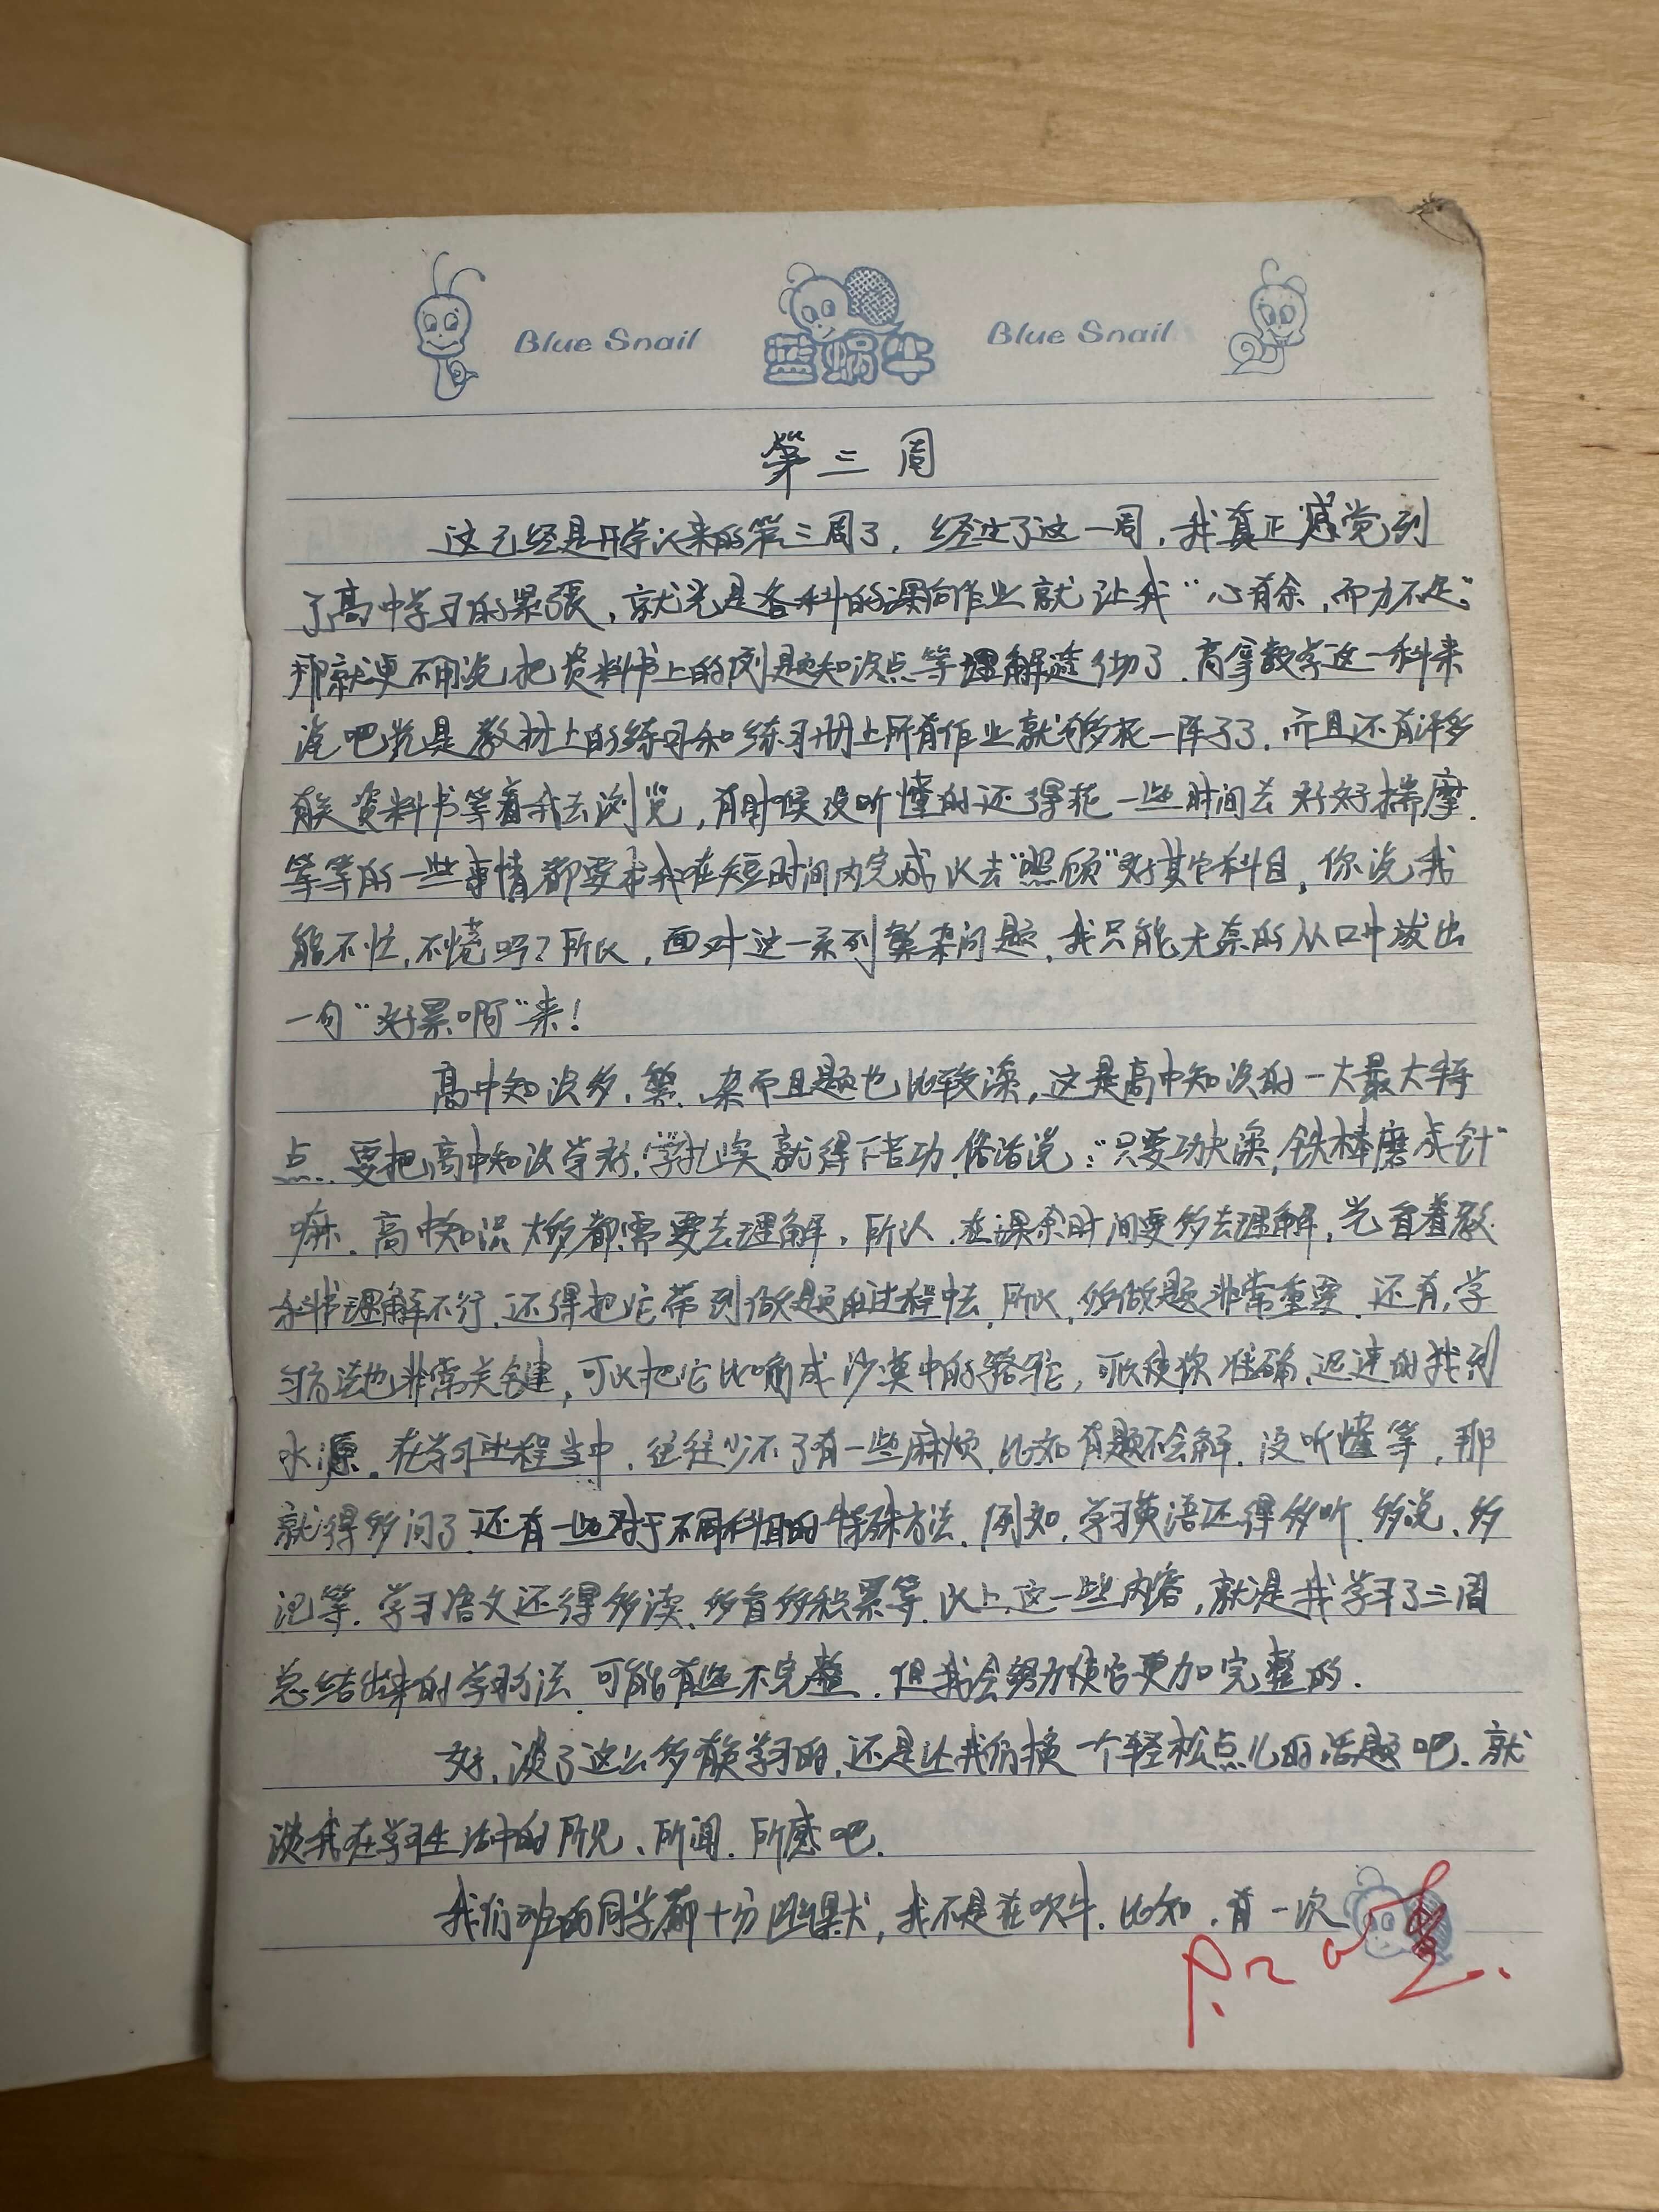 Blue Snail 蓝蜗牛 Blue Snail
第三周
这已经是开学以来的第三周了，经过了这一周，我真正感觉到
了高中学习的紧张，就光是各科的课后作业就让我“心有余，而力不足”
那就更不用说把资料书上的例题知识点等理解透彻了。商拿数学这一科来
说吧光是教材上的练习和练习册上所有作业就够花一阵子了，而且还有许多
有关资料书等着我去浏览，有时候没听懂的还得花一些时间去好好揣摩。
等等的一些事情都要求我在短时间内完成以去“照顾”好其它科目，你说我
能不忙，不慌吗？所以，面对这一系列繁杂问题，我只能无奈的从口中放出
一句“好累啊”来！
高中知识多、繁、杂而且题也比较深，这是高中知识的一大最大特
点。要把高中知识学好，学扎实就得下苦功，俗话说：“只要功夫深，铁棒磨成针”
嘛。高中知识大多都需要去理解，所以，在课余时间要多去理解，光盲着教
科书理解不行，还得把它带到做题的过程中去，所以，多做题非常重要。还有，学
习方法也非常关键，可以把它比喻成沙漠中的骆驼，可以使你准确、迅速的找到
水源。在学习过程当中，往往少不了有一些麻烦，比如有题不会解，没听懂等，那
就得多问了，还有一些对于不同科目的特殊方法，例如，学习英语还得多听、多说、多
记等，学习语文还得多读、多看多积累等，以上这一些内容，就是我学习了三周
总结出来的学习方法，可能有些不完整，但我会努力使它更加完整的。
好，谈了这么多有关学习的，还是让我们换一个轻松点儿的话题吧，就
谈我在学习生活中的所见、所闻、所感吧。
我们班的同学都十分幽默，我不是在吹牛，比如，有一次